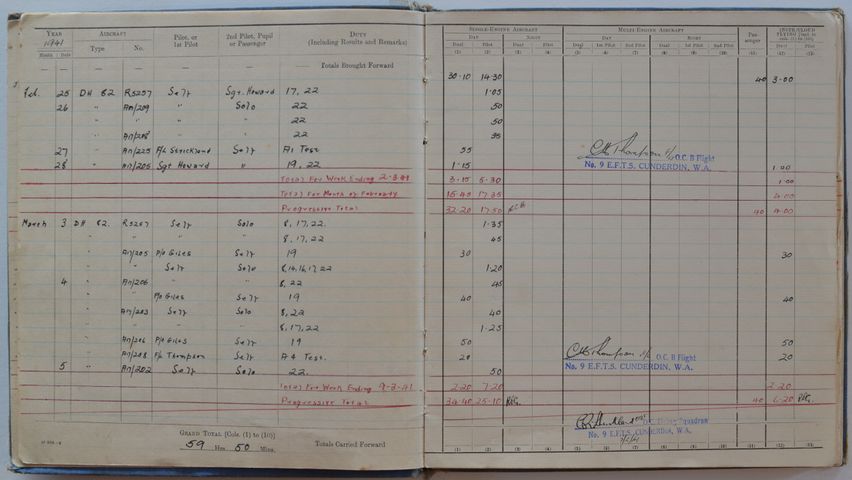 YEAR AIRCRAFT Pilot, or 2nd Pilot, Pupil DUTY
1941 Type No. 1st Pilot or Passenger (Including Results and Remarks)
Month Date
— — — — — — Totals Brought Forward
Feb. 25 DH 82 R5257 Self Sgt. Howard 17, 22
26 " AN/209 " Solo 22
" " " 22
" " 22
27 " AN/225 F/L Strickland Self A1 Test
28 " AN/205 Sgt Howard " 19, 22
Total For Week Ending 2-3-41
Total For Month of February
Progressive Total
March 3 DH 82. R5257 Self Solo 8, 17, 22.
" " " " 8, 17, 22
" AN/205 P/O Giles Self 19
" " Self Solo 8, 14, 16, 17, 22
4 " AN/206 " " 8, 22
" " P/O Giles Self 19
" AN/203 Self Solo 8, 22
" " " " 8, 17, 22
" AN/206 P/O Giles Self 19
" AN/208 F/L Thompson Self A4 Test.
5 " AN/202 Self Solo 22.
Total For Week Ending 9-3-41
Progressive Total
GRAND TOTAL [Cols. (1) to (10)]
59 Hrs 50 Mins.
Totals Carried Forward
SINGLE-ENGINE AIRCRAFT MULTI-ENGINE AIRCRAFT
DAY NIGHT DAY NIGHT
Dual Pilot Dual Pilot Dual 1st Pilot 2nd Pilot Dual 1st Pilot 2nd Pilot Dual Pilot
(1) (2) (3) (4) (5) (6) (7) (8) (9) (10) (11) (12) (13)
30-10 14-30 40 3-00
1-05
50
50
35
55
C H Thompson F/L O.C. B Flight
No. 9 E.F.T.S. CUNDERDIN, W.A.
1-15 1-00
3-15 5-30 1-00
17-35 4-00
32-20 17-50 40 4-00
1-35
45
30 30
1-20
45
40 40
40
1-25
50 50
20 20
C H Thompson F/L O.C. B Flight
No. 9 E.F.T.S. CUNDERDIN, W.A.
50
2-20 7-20 2-20
34-40 25-10 40 6-20
No. 9 E.F.T.S. CUNDERDIN, W.A.
(1) (2) (3) (4) (5) (6) (7) (8) (9) (10) (11) (12) (13)